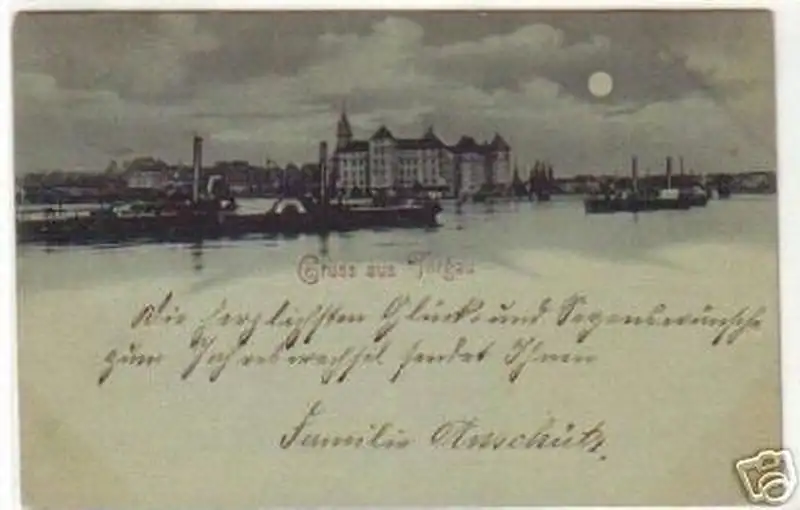 Gruss aus Torgau
Die herzlichsten Glück- und Segenswünsche
zum Jahreswechsel sendet Ihnen
Familie Anschütz.